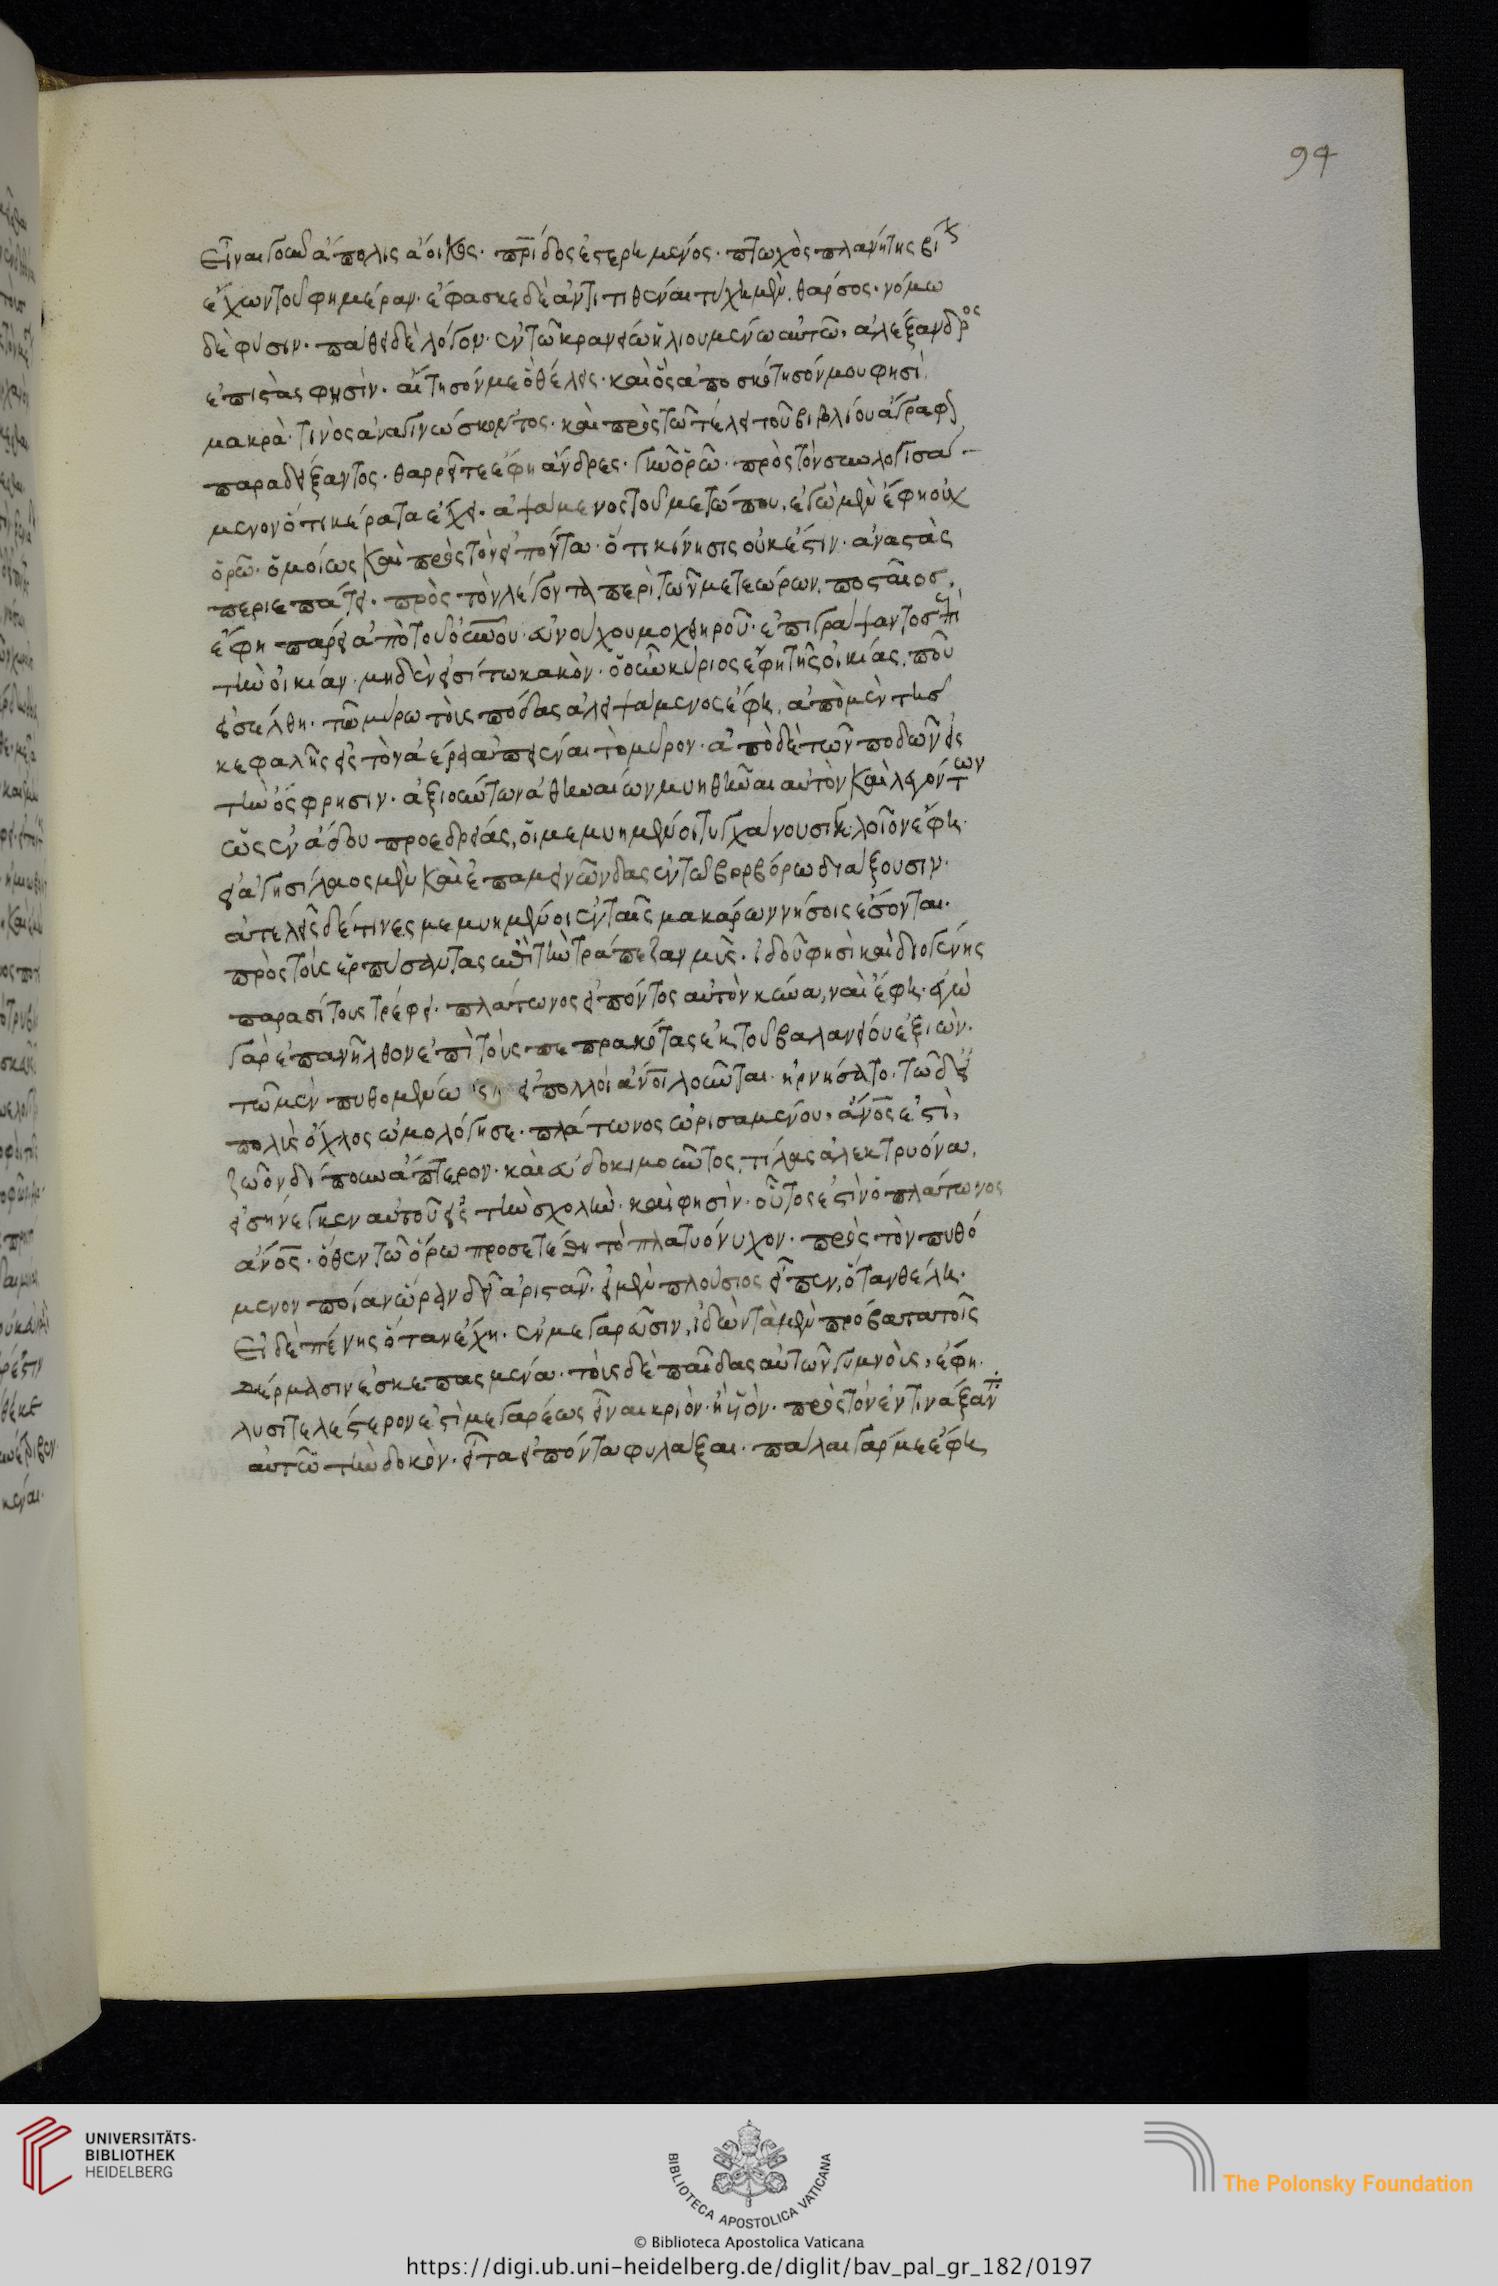 94
εἶναι γοῦν ἄπολις ἄοικος. πρίδος ἐστερημένος. πτωχὸς πλανήτης βί
ἔχων τοὐφημέραν. ἔφασκε δὲ ἀντιτιθέναι τύχη μὲν θάρσος. νόμω
δὲ φύσιν. πάθει δὲ λόγον. ἐν τῶ κρανείω ἡλιουμένω αὐτῶ, ἀλέξανδρος
ἐπιστὰς φησὶν. αἴτησόν με ὃ θέλεις. καὶ ὃς ἀποσκότησόν μου φησὶ.
μακρὰ τινὸς ἀναγινώσκοντος. καὶ πρὸς τῶ τέλει τοῦ βιβλίου ἄγραφ
παραδείξαντος. θαρρεῖτε ἔφη ἄνδρες. γῆν ὁρῶ. πρὸς τὸν συλλογισά
μενον ὅτι κέρατα ἔχει. ἁψάμενος τοῦ μετώπου, ἐγὼ μὲν ἔφη οὐχ
ὁρῶ. ὁμοίως καὶ πρὸς τὸν εἰπόντα. ὅτι κίνησις οὐκ ἔστιν. ἀναστὰς
περιεπάτει. πρὸς τὸν λέγοντα περὶ τῶν μετεώρων, ποσταῖος,
ἔφη πάρει ἀπὸ τοῦ οὐνοῦ. εὐνούχου μοχθηροῦ. ἐπιγράψαντος ἐπὶ
τὴν οἰκίαν. μηδὲν εἰσίτω κακὸν. ὁ οὖν κύριος ἔφη τῆς οἰκίας, ποῦ
εἰσέλθη. τῶ μύρω τοὺς πόδας ἀλειψάμενος ἔφη, ἀπὸ μὲν τῆς
κεφαλῆς εἰς τὸν ἀέρα ἀπιέναι τὸ μύρον. ἀπὸ δὲ τῶν ποδῶν εἰς
τὴν ὄσφρησιν. ἀξιούντων ἀθηναίων μυηθῆναι αὐτὸν καὶ λεγόντων
ὡς ἐν ἅδου προεδρείας, οἱ μεμυημένοι τυγχάνουσι γελοῖον ἔφη.
εἰ ἀγησίλαος μὲν καὶ ἐπαμεινώνδας ἐν τῶ βορβόρω διάξουσιν.
εὐτελεῖς δέ τινες μεμυημένοι ἐν ταῖς μακάρων νήσοις ἔσονται.
πρὸς τοὺς ἑρπύσαντας ἐπὶ τὴν τράπεζαν μῦς. ἰδοὺ φησὶ καὶ διογένης
παρασίτους τρέφει. πλάτωνος εἰπόντος αὐτὸν κύνα, ναὶ ἔφη. ἐγὼ
γὰρ ἐπανῆλθον ἐπὶ τοὺς πεπρακότας ἐκ τοῦ βαλανείου ἐξιὼν.
τῶ μὲν πυθομένω εἰ πολλοὶ ἄνοι λοῦνται. ἠρνήσατο. τῶ δὲ εἰ
πολὺς ὄχλος ὡμολόγησε. πλάτωνος ὁρισαμένου, ἄνος ἐστὶ,
ζῶον δίπουν ἄπτερον. καὶ εὐδοκιμοῦντος, τίλας ἀλεκτρυόνα,
εἰσήνεγκεν αὐτοῦ εἰς τὴν σχολὴν. καὶ φησὶν. οὗτος ἐστὶν ὁ πλάτωνος
ἄνος. ὅθεν τῶ ὅρω προσετέθη τὸ πλατυόνυχον. πρὸς τὸν πυθό
μενον ποίαν ὥραν δεῖ ἀριστᾶν. εἰ μὲν πλούσιος εἶπεν, ὅταν θέλη.
εἰ δὲ πένης ὅταν ἔχη. ἐν μεγαροῖς ἰδὼν τὰ μὲν πρόβατα τοῖς
δέρμασιν ἐσκεπασμένα. τοὺς δὲ παῖδας αὐτῶν γυμνοὺς, ἔφη.
λυσιτελέστερον ἐστὶ μεγαρέως εἶναι κριὸν. ἢ υἱὸν. πρὸς τὸν ἐντινάξαντ
αὐτῶ τὴν δοκὸν. εἶτα εἰπόντα φύλαξαι. πάλαι γάρ με ἔφη
UNIVERSITÄTS-
BIBLIOTHEK
HEIDELBERG
BIBLIOTECA APOSTOLICA VATICANA
© Biblioteca Apostolica Vaticana
The Polonsky Foundation
https://digi.ub.uni-heidelberg.de/diglit/bav_pal_gr_182/0197